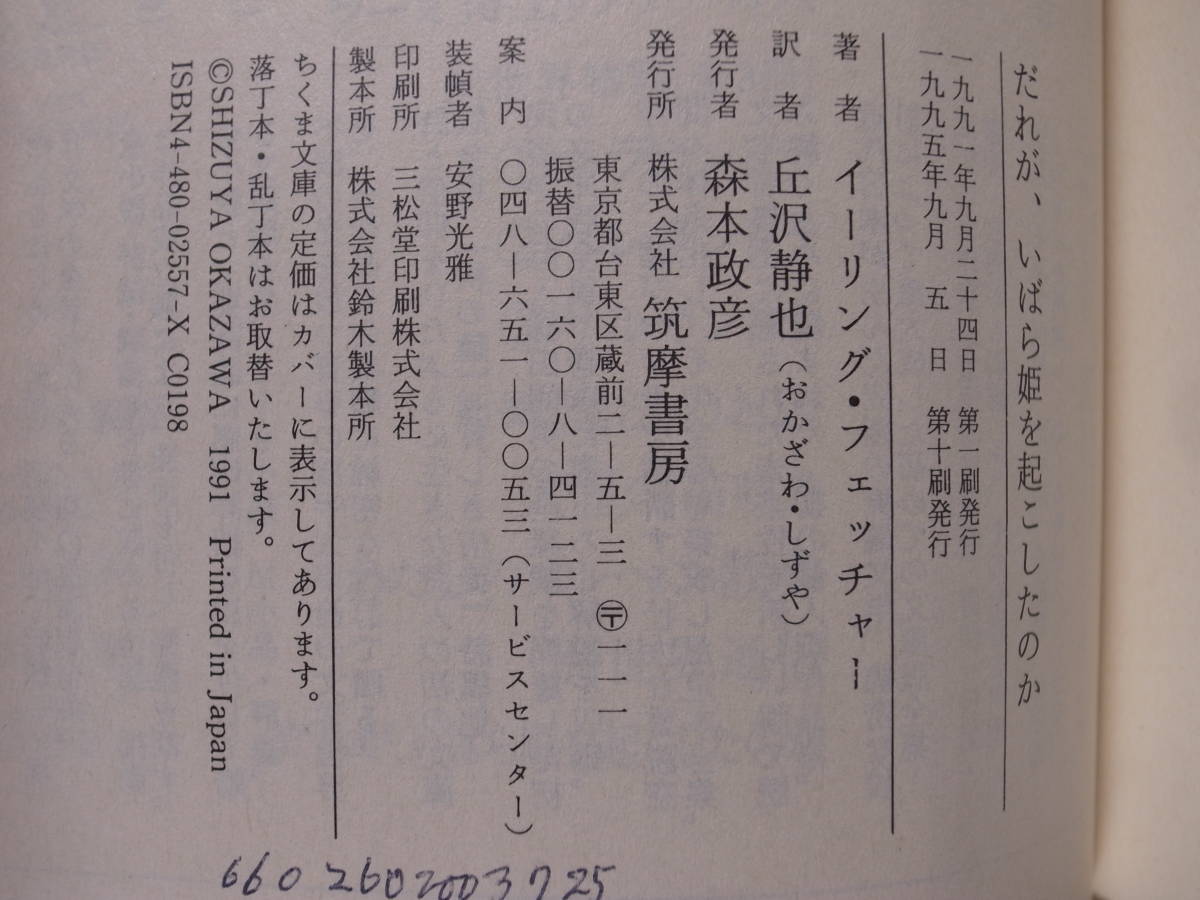 だれが、いばら姫を起こしたのか
一九九一年九月二十四日 第一刷発行
一九九五年九月 五 日 第十刷発行
著 者 イーリング・フェッチャー
訳 者 丘沢静也（おかざわ・しずや）
発行者 森本政彦
発行所 株式会社 筑摩書房
東京都台東区蔵前二―五―三 〒一一一
振替〇〇一六〇―八―四一二三
案 内 〇四八―六五一―〇〇五三（サービスセンター）
装幀者 安野光雅
印刷所 三松堂印刷株式会社
製本所 株式会社鈴木製本所
ちくま文庫の定価はカバーに表示してあります。
落丁本・乱丁本はお取替いたします。
©SHIZUYA OKAZAWA 1991 Printed in Japan
ISBN4-480-02557-X C0198
660 2602003725